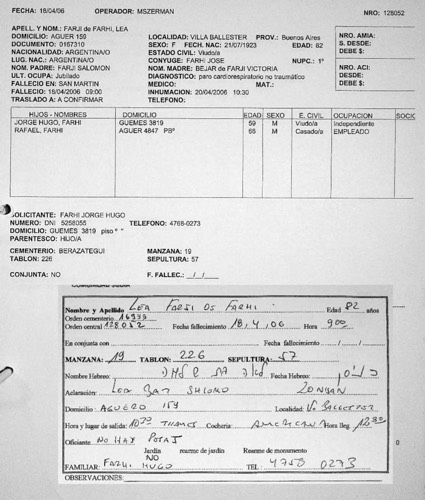 FECHA: 18/04/06 OPERADOR: MSZERMAN NRO: 128052
APELL. Y NOM.: FARJI de FARHI, LEA
DOMICILIO: AGUER 159 LOCALIDAD: VILLA BALLESTER PROV.: Buenos Aires NRO. AMIA:
DOCUMENTO: 0167310 SEXO: F FECH. NAC: 21/07/1923 EDAD: 82 S. DESDE:
NACIONALIDAD: ARGENTINA/O ESTADO CIVIL: Viudo/a DEBE $:
LUG. NAC.: ARGENTINA/O CONYUGE: FARHI JOSE NUPC.: 1º
NOM. PADRE: FARJI SALOMON NOM. MADRE: BEJAR de FARJI VICTORIA NRO. ACI:
ULT. OCUPA: Jubilado DIAGNOSTICO: paro cardiorespiratorio no traumático DESDE:
FALLECIO EN: SAN MARTIN MEDICO: MAT.: DEBE $:
FALLECIO: 18/04/2006 09:00 INHUMACION: 20/04/2006 10:30
TRASLADO A: A CONFIRMAR TELEFONO:
HIJOS - NOMBRES DOMICILIO EDAD SEXO E. CIVIL OCUPACION SOCIO
JORGE HUGO, FARHI GUEMES 3819 59 M Viudo/a Independiente
RAFAEL, FARHI AGUER 4847 PBº 66 M Casado/a EMPLEADO
SOLICITANTE: FARHI JORGE HUGO
NUMERO: DNI 5258055 TELEFONO: 4768-0273
DOMICILIO: GUEMES 3819 piso º "
PARENTESCO: HIJO/A
CEMENTERIO: BERAZATEGUI MANZANA: 19
TABLON: 226 SEPULTURA: 57
CONJUNTA: NO F. FALLEC.: _/_/_
Nombre y Apellido LEA FARJI DE FARHI Edad 82 años
Orden cementerio
Orden central 128052 Fecha fallecimiento 18, 4, 06 Hora 900
En conjunta con Fecha fallecimiento / /
MANZANA: 19 TABLON: 226 SEPULTURA: 57
Nombre Hebreo: Fecha Hebreo:
Aclaración: LEA BAT SHLOMO
Domicilio: AGUERO 159 Localidad: Va BALLESTER
Hora y lugar de salida: 1030 Cocheria: AMERICANA Hora lleg.
Oficiante NO HAY
Jardín rearme de jardín Rearme de monumento
NO
FAMILIAR: FARHI HUGO TEL: 4758 0273
OBSERVACIONES: